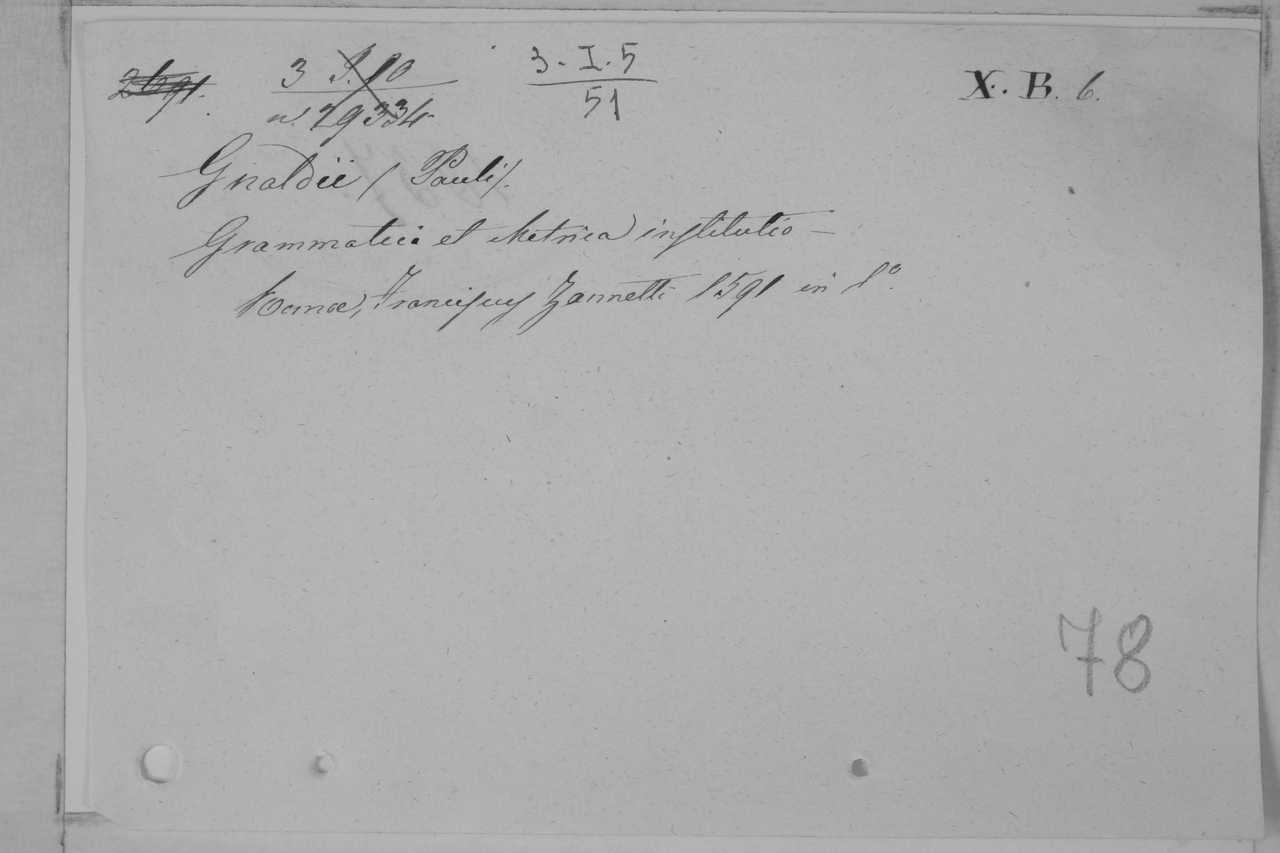 2691. 3 S. 10 3-I.5 X. B. 6.
n. 29334 51
Grialdii (Pauli).
Grammatici et Metrica institutio —
Romæ, Franciscus Zannetti 1591 in 8°.
78